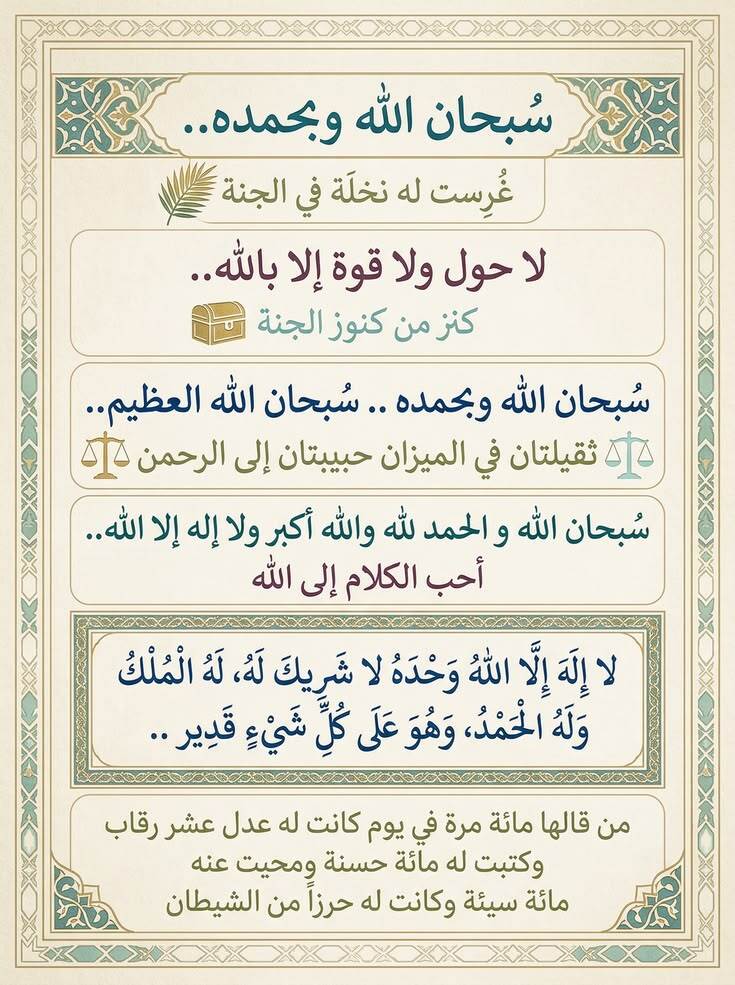 سُبحان الله وبحمده..
غُرِست له نخلَة في الجنة
لا حول ولا قوة إلا بالله..
كنز من كنوز الجنة
سُبحان الله وبحمده .. سُبحان الله العظيم..
ثقيلتان في الميزان حبيبتان إلى الرحمن
سُبحان الله و الحمد لله والله أكبر ولا إله إلا الله..
أحب الكلام إلى الله
لا إِلَهَ إِلَّا اللهُ وَحْدَهُ لا شَرِيكَ لَهُ، لَهُ الْمُلْكُ
وَلَهُ الْحَمْدُ، وَهُوَ عَلَى كُلِّ شَيْءٍ قَدِير ..
من قالها مائة مرة في يوم كانت له عدل عشر رقاب
وكتبت له مائة حسنة ومحيت عنه
مائة سيئة وكانت له حرزاً من الشيطان